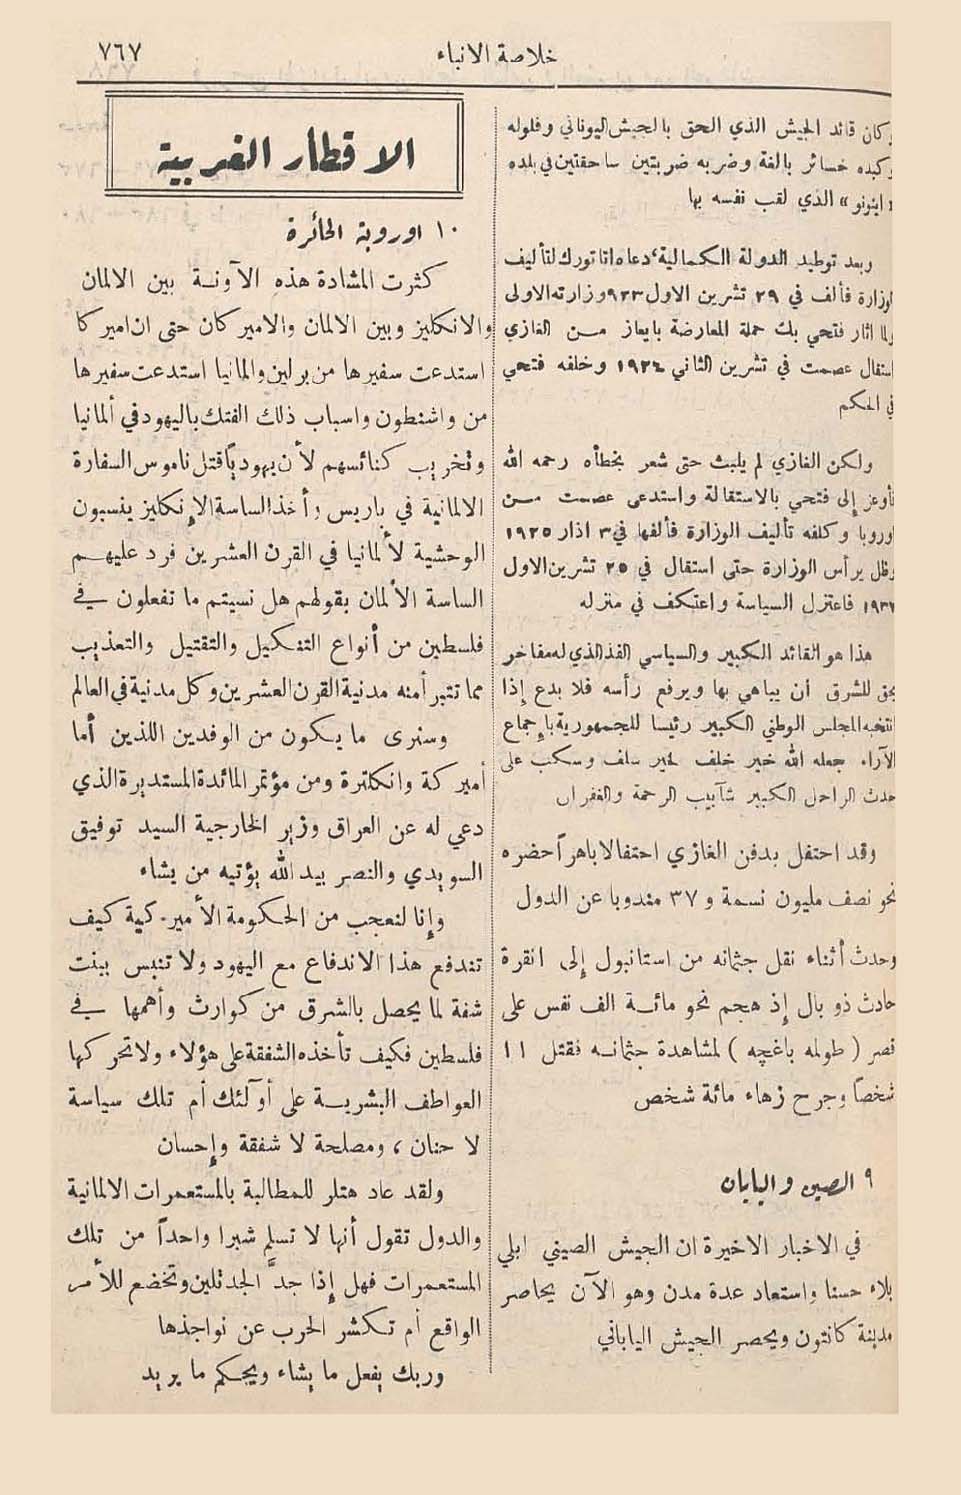 خلاصة الانباء
٧٦٧
وكان قائد الجيش الذي الحق بالجيش اليوناني وفلوله
وكبده خسائر بالغة وضربه ضربتين ساحقتين في بلده
« اينونو » الذي لقب نفسه بها
وبعد توطيد الدولة الكمالية، دعاه اتاتورك لتأليف
الوزارة فألف في ٢٩ تشرين الاول ٩٢٣ وزارته الاولى
ولما اثار فتحي بك حملة المعارضة بايعاز من الغازي
استقال عصمت في تشرين الثاني ١٩٢٤ وخلفه فتحي
في الحكم
ولكن الغازي لم يلبث حتى شعر بخطأه رحمه الله
فأوعز إلى فتحي بالاستقالة واستدعى عصمت من
اوروبا وكلفه تأليف الوزارة فألفها في ٣ اذار ١٩٢٥
وظل يرأس الوزارة حتى استقال في ٢٥ تشرين الاول
١٩٣٧ فاعتزل السياسة واعتكف في منزله
هذا هو القائد الكبير والسياسي الفذ الذي له مفاخر
يحق للشرق أن يباهي بها ويرفع رأسه فلا بدع إذا
انتخبه المجلس الوطني الكبير رئيسا للجمهورية بإجماع
الآراء جعله الله خير خلف لخير سلف وسكب على
حدث الراحل الكبير شآبيب الرحمة والغفران
وقد احتفل بدفن الغازي احتفالا باهراً حضره
نحو نصف مليون نسمة و ٣٧ مندوبا عن الدول
وحدث أثناء نقل جثمانه من استانبول إلى انقرة
حادث ذو بال إذ هجم نحو مائة الف نفس على
قصر ( طولمه باغچه ) لمشاهدة جثمانه فقتل ١١
شخصاً وجرح زهاء مائة شخص
٩ الصين واليابان
في الاخبار الاخيرة ان الجيش الصيني ابلي
بلاء حسنا واستعاد عدة مدن وهو الآن يحاصر
مدينة كانتون ويحصر الجيش الياباني
الاقطار الغربية
١٠ اوروبة الحائرة
كثرت المشادة هذه الآونة بين الالمان
والانكليز وبين الالمان والاميركان حتى ان اميركا
استدعت سفيرها من برلين والمانيا استدعت سفيرها
من واشنطون واسباب ذلك الفتك باليهود في ألمانيا
وتخريب كنائسهم لأن يهودياً قتل ناموس السفارة
الالمانية في باريس وأخذ الساسة الإنكليز ينسبون
الوحشية لألمانيا في القرن العشرين فرد عليهم
الساسة الألمان بقولهم هل نسيتم ما تفعلون في
فلسطين من أنواع التنكيل والتقتيل والتعذيب
مما تتبرأ منه مدنية القرن العشرين وكل مدنية في العالم
وسنرى ما يكون من الوفدين اللذين أما
أميركة وانكلترة ومن مؤتمر المائدة المستديرة الذي
دعي له عن العراق وزير الخارجية السيد توفيق
السويدي والنصر بيد الله يؤتيه من يشاء
وإنا لنعجب من الحكومة الأميركية كيف
تندفع هذا الاندفاع مع اليهود ولا تنبس ببنت
شفة لما يحصل بالشرق من كوارث وأهمها في
فلسطين فكيف تأخذه الشفقة على هؤلاء ولا تحركها
العواطف البشرية على أولئك أم تلك سياسة
لا حنان ، ومصلحة لا شفقة وإحسان
ولقد عاد هتلر للمطالبة بالمستعمرات الالمانية
والدول تقول أنها لا تسلم شبرا واحداً من تلك
المستعمرات فهل إذا جدَّ الجد تلين وتخضع للأمر
الواقع أم تكشر الحرب عن نواجذها
وربك يفعل ما يشاء ويحكم ما يريد